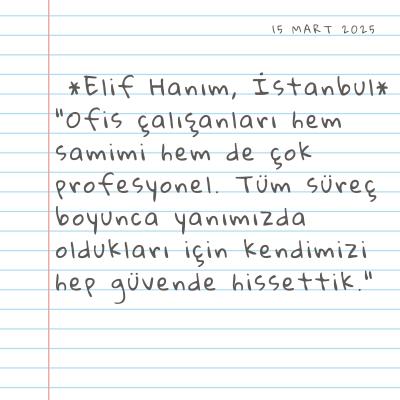 15 MART 2025
*Elif Hanım, İstanbul*
"Ofis çalışanları hem
samimi hem de çok
profesyonel. Tüm süreç
boyunca yanımızda
oldukları için kendimizi
hep güvende hissettik."